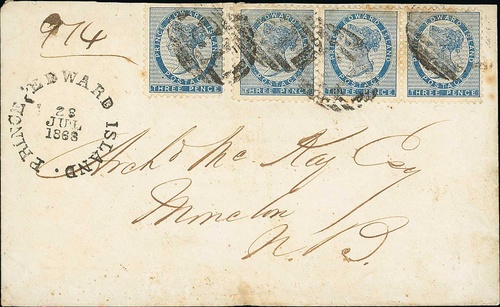 974
PRINCE EDWARD ISLAND
THREE PENCE
PRINCE EDWARD ISLAND
POSTAGE
THREE PENCE
PRINCE EDWARD ISLAND
POSTAGE
THREE PENCE
PRINCE EDWARD ISLAND
POSTAGE
THREE PENCE
PRINCE EDWARD ISLAND.
28
JUL
1868
Archd McKay Esq
Moncton
N.B.